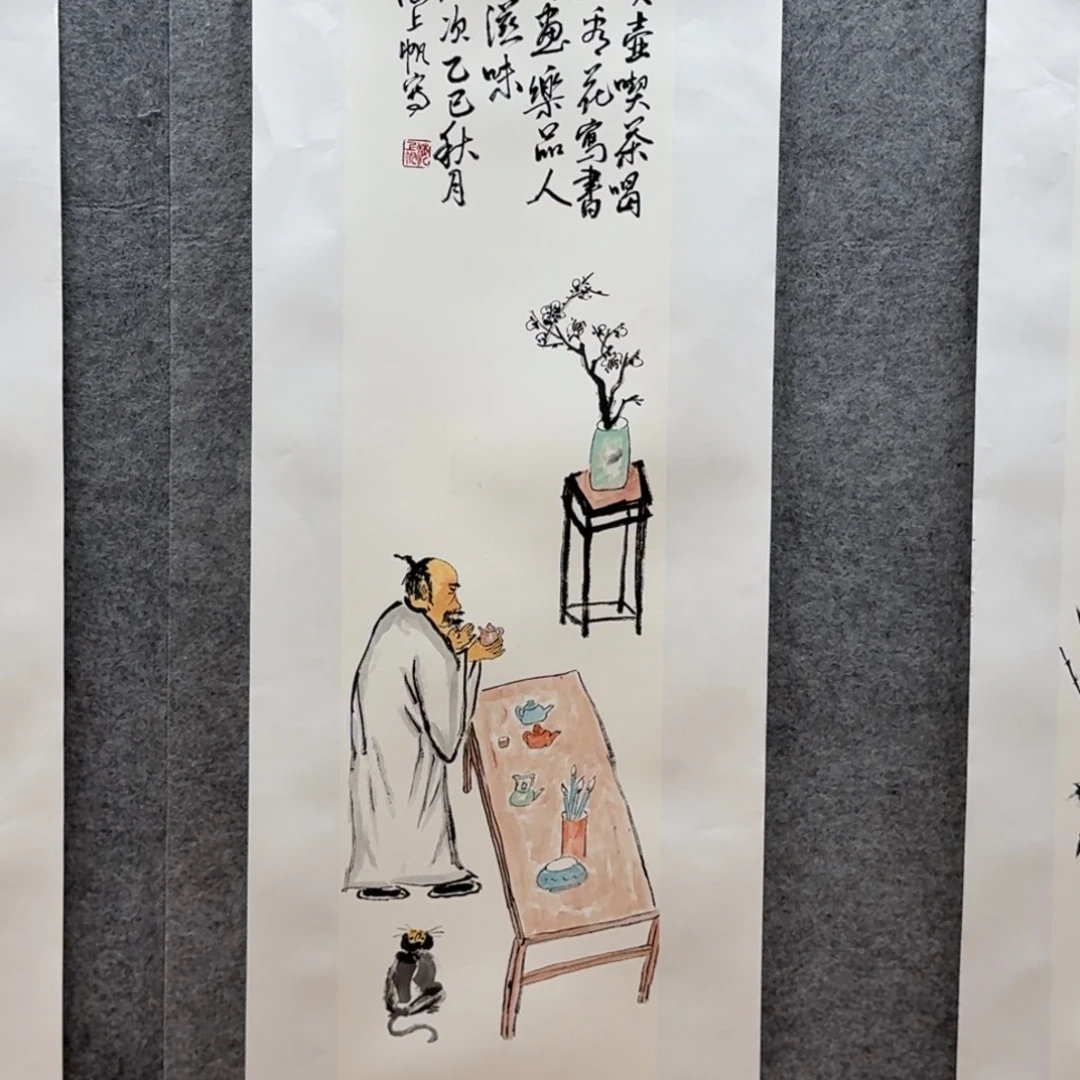 壺喫茶喝
看花寫書
畫樂品人
滋味
次乙巳秋月
上帆寫